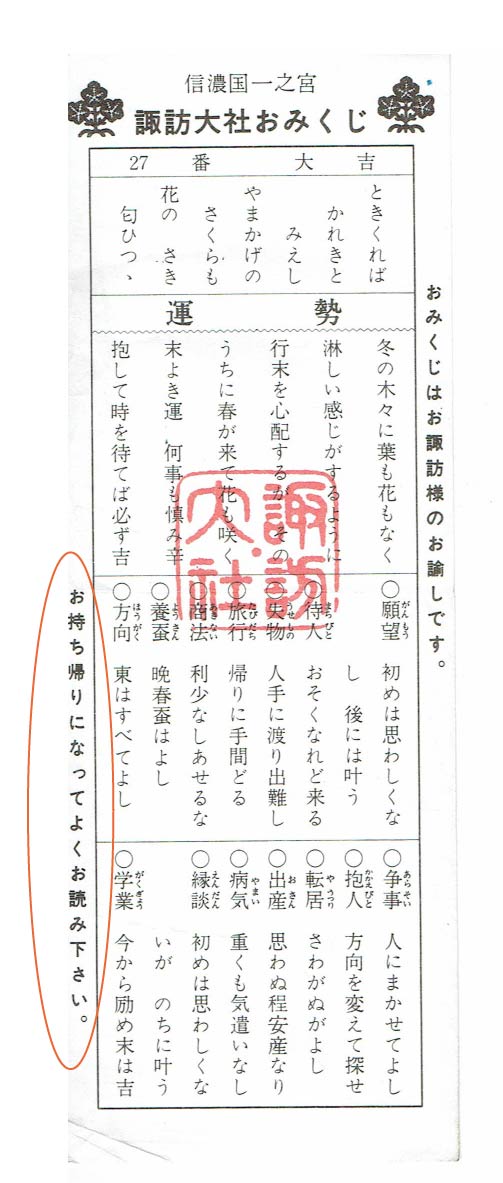 信濃国一之宮
諏訪大社おみくじ
おみくじはお諏訪様のお諭しです。
27番 大吉
ときくれば
かれきと
みえし
やまかげの
さくらも
花の さき
匂ひつゝ
運勢
冬の木々に葉も花もなく
淋しい感じがするように
行末を心配するが その
うちに春が来て花も咲く
末よき運 何事も慎み辛
抱して時を待てば必ず吉
諏訪大社
○願望 初めは思わしくな
し 後には叶う
○待人 おそくなれど来る
○失物 人手に渡り出難し
○旅行 帰りに手間どる
○商法 利少なしあせるな
○養蚕 晩春蚕はよし
○方向 東はすべてよし
○争事 人にまかせてよし
○抱人 方向を変えて探せ
○転居 さわがぬがよし
○出産 思わぬ程安産なり
○病気 重くも気遣いなし
○縁談 初めは思わしくな
いが のちに叶う
○学業 今から励め末は吉
お持ち帰りになってよくお読み下さい。